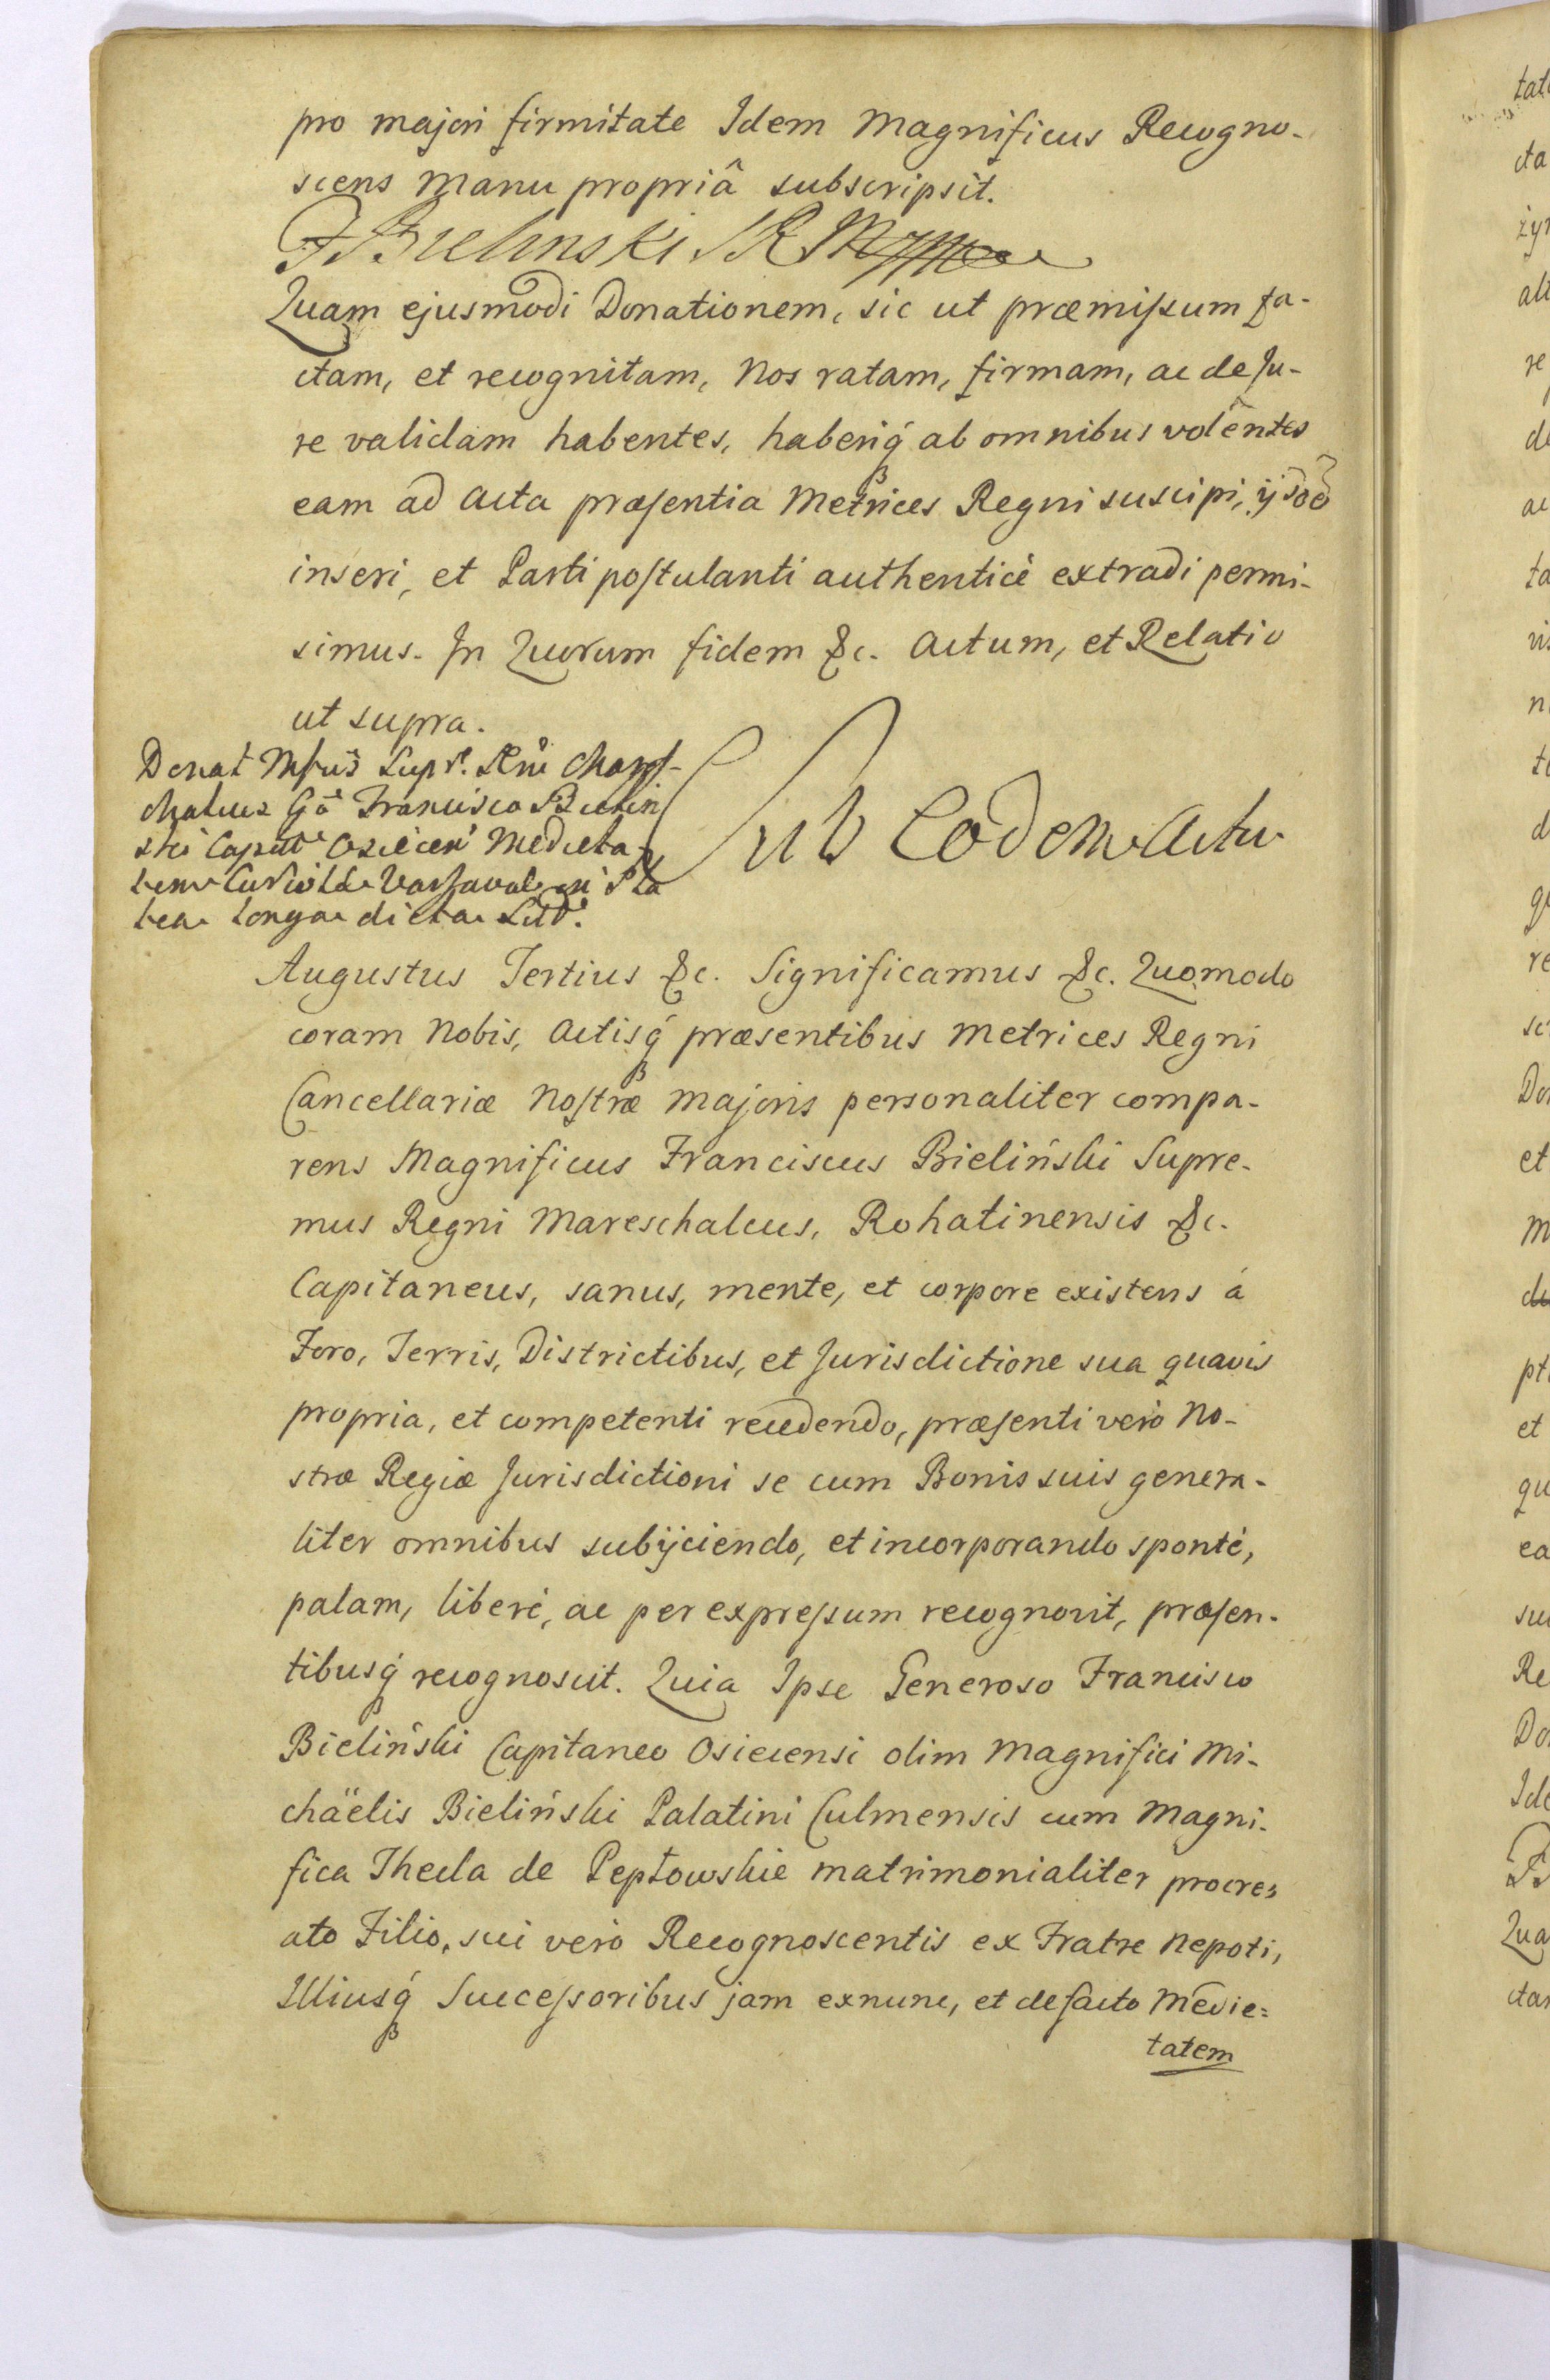 pro majori firmitate Idem Magnificus Recogno-
scens Manu propriâ subscripsit.
F Bielinski
Quam ejusmodi Donationem, sic ut præmissum fa-
ctam, et recognitam, Nos ratam, firmam, ac de Ju-
re validam habentes, haberiq́ ab omnibus volentes
eam ad Acta præsentia Metrices Regni suscipi, ijsdē
inseri, et Parti postulanti authenticè extradi permi-
simus. In Quorum fidem &c. Actum, et Relatio
ut supra.
Donat
Francisco Bielin
ski Capit Osiecen Medieta-
tem Curiæ Varsaviæ in Pla
tea Longa dicta
Sub Eodem Actu
Augustus Tertius &c. Significamus &c. Quomodo
coram Nobis, Actisq́ præsentibus Metrices Regni
Cancellariæ Nostræ Majoris personaliter compa-
rens Magnificus Franciscus Bieliński Supre-
mus Regni Mareschalcus, Rohatinensis &c.
Capitaneus, sanus, mente, et corpore existens á
Foro, Terris, Districtibus, et Jurisdictione sua quavis
propria, et competenti recedendo, præsenti verò No-
stræ Regiæ Jurisdictioni se cum Bonis suis genera-
liter omnibus subijciendo, et incorporando spontè,
palam, liberè, ac per expressum recognovit, præsen-
tibusq́ recognoscit. Quia Ipse Generoso Francisco
Bieliński Capitaneo Osiecensi olim Magnifici Mi-
chäelis Bieliński Palatini Culmensis cum Magni-
fica Thecla de Pepłowskie matrimonialiter procre=
ato Filio, sui verò Recognoscentis ex Fratre Nepoti,
Illiusq́ Successoribus jam exnunc, et defacto Medie=
tatem